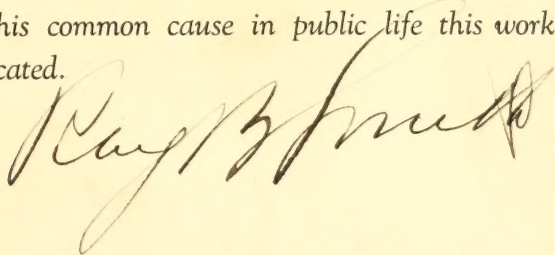 his common cause in public life this work
cated.
Ray B Smith